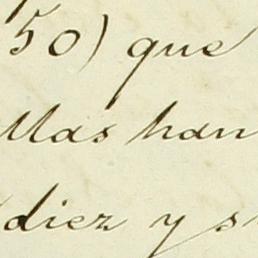 50) que
llas han
diez y s